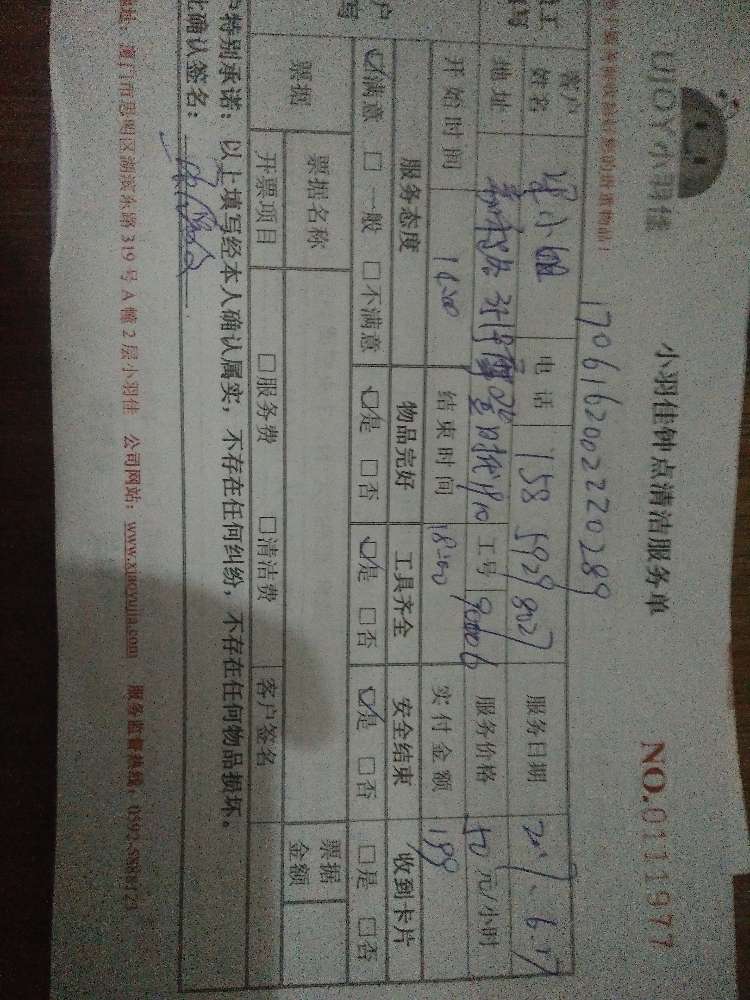 UJOY小羽佳
小羽佳钟点清洁服务单
NO.0111977
1706162002220289
客户
姓名
小姐
电话
158 5929 8027
服务日期
地址
工号
90006
服务价格
50 元/小时
开始时间
14:00
结束时间
18:00
实付金额
199
服务态度
物品完好
工具齐全
安全结束
收到卡片
☑满意 □一般 □不满意
☑是 □否
☑是 □否
☑是 □否
□是 □否
票据
票据名称
票据
金额
开票项目
□服务费 □清洁费
客户签名
特别承诺：以上填写经本人确认属实，不存在任何纠纷，不存在任何物品损坏。
确认签名：
厦门市思明区湖滨东路 319 号 A 幢 2 层小羽佳 公司网站：www.xiaoyujia.com 服务监督热线：0592-5888123